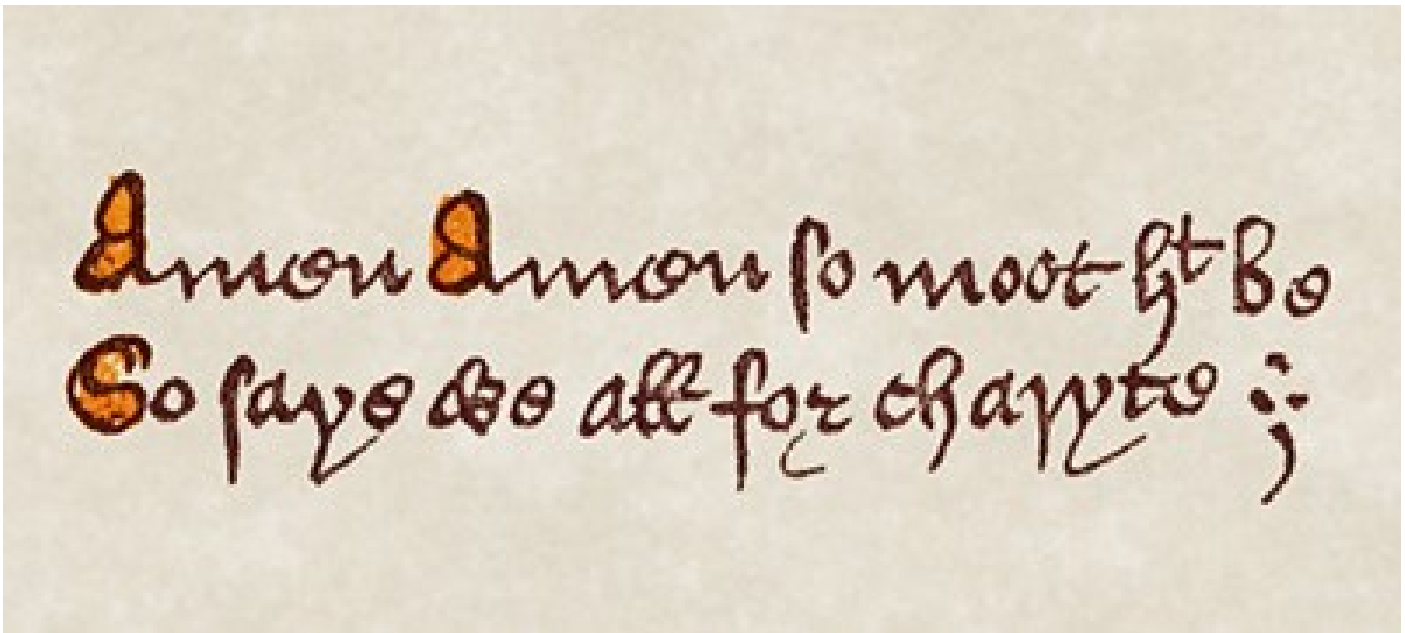 Amen Amen so moot hyt be
So say we all for charyte